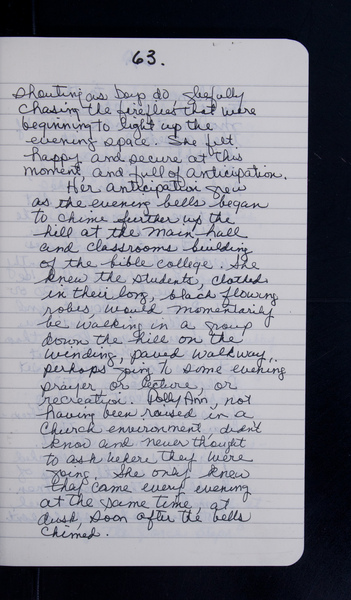 63.
shouting as boys do, gleefully
chasing the fireflies that were
beginning to light up the
evening space. She felt
happy, and secure at this
moment, and full of anticipation.
Her anticipation grew
as the evening bells began
to chime further up the
hill at the main hall
and classrooms building
of the bible college. She
knew the students, clothed
in their long, black flowing
robes, would momentarily
be walking in a group
down the hill on the
winding, paved walkway,
perhaps going to some evening
prayer or lecture, or
recreation. Polly Ann, not
having been raised in a
church environment, didn't
know and never thought
to ask where they were
going. She only knew
they came every evening
at the same time, at
dusk, soon after the bells
chimed.